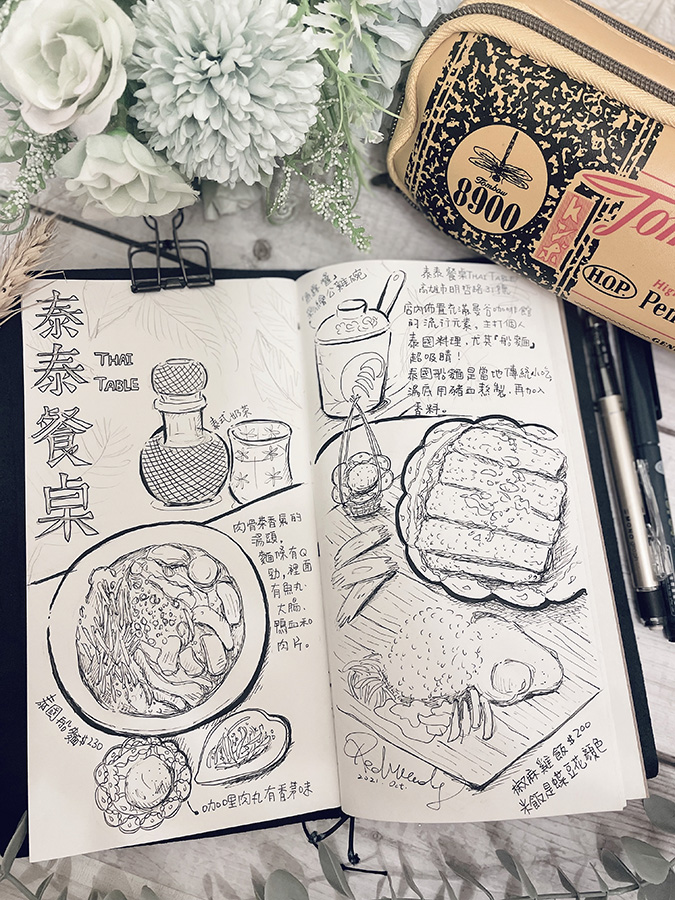 泰泰餐桌
THAI
TABLE
泰式奶茶
肉骨茶香氣的
湯頭，
麵條有Q
勁，裡面
有魚丸、
大腸、
鴨血和
肉片。
泰國船麵$130
咖哩肉丸有香茅味
公雞碗
泰泰餐桌THAI TABLE
高雄市明哲路
店內佈置充滿曼谷咖啡館
的流行元素，主打個人
泰國料理，尤其「船麵」
超吸睛！
泰國船麵是當地傳統小吃，
湯底用豬血熬製，再加入
香料。
椒麻雞飯$200
米飯是蝶豆花顏色
RedWendy
2021. Oct.
Tombow
8900
Tom
H.O.P.
Pen